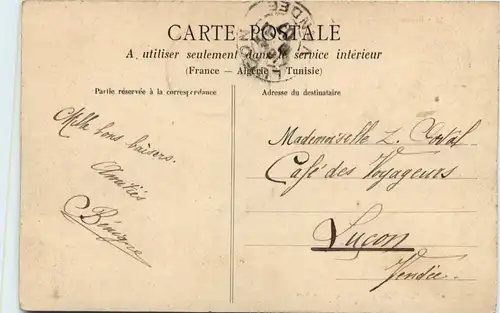 CARTE POSTALE
A utiliser seulement dans le service intérieur
(France — Algérie — Tunisie)
Partie réservée à la correspondance
Adresse du destinataire
Mille bons baisers.
Amitiés
Bénigne
Mademoiselle L.
Café des Voyageurs
Luçon
Vendée.